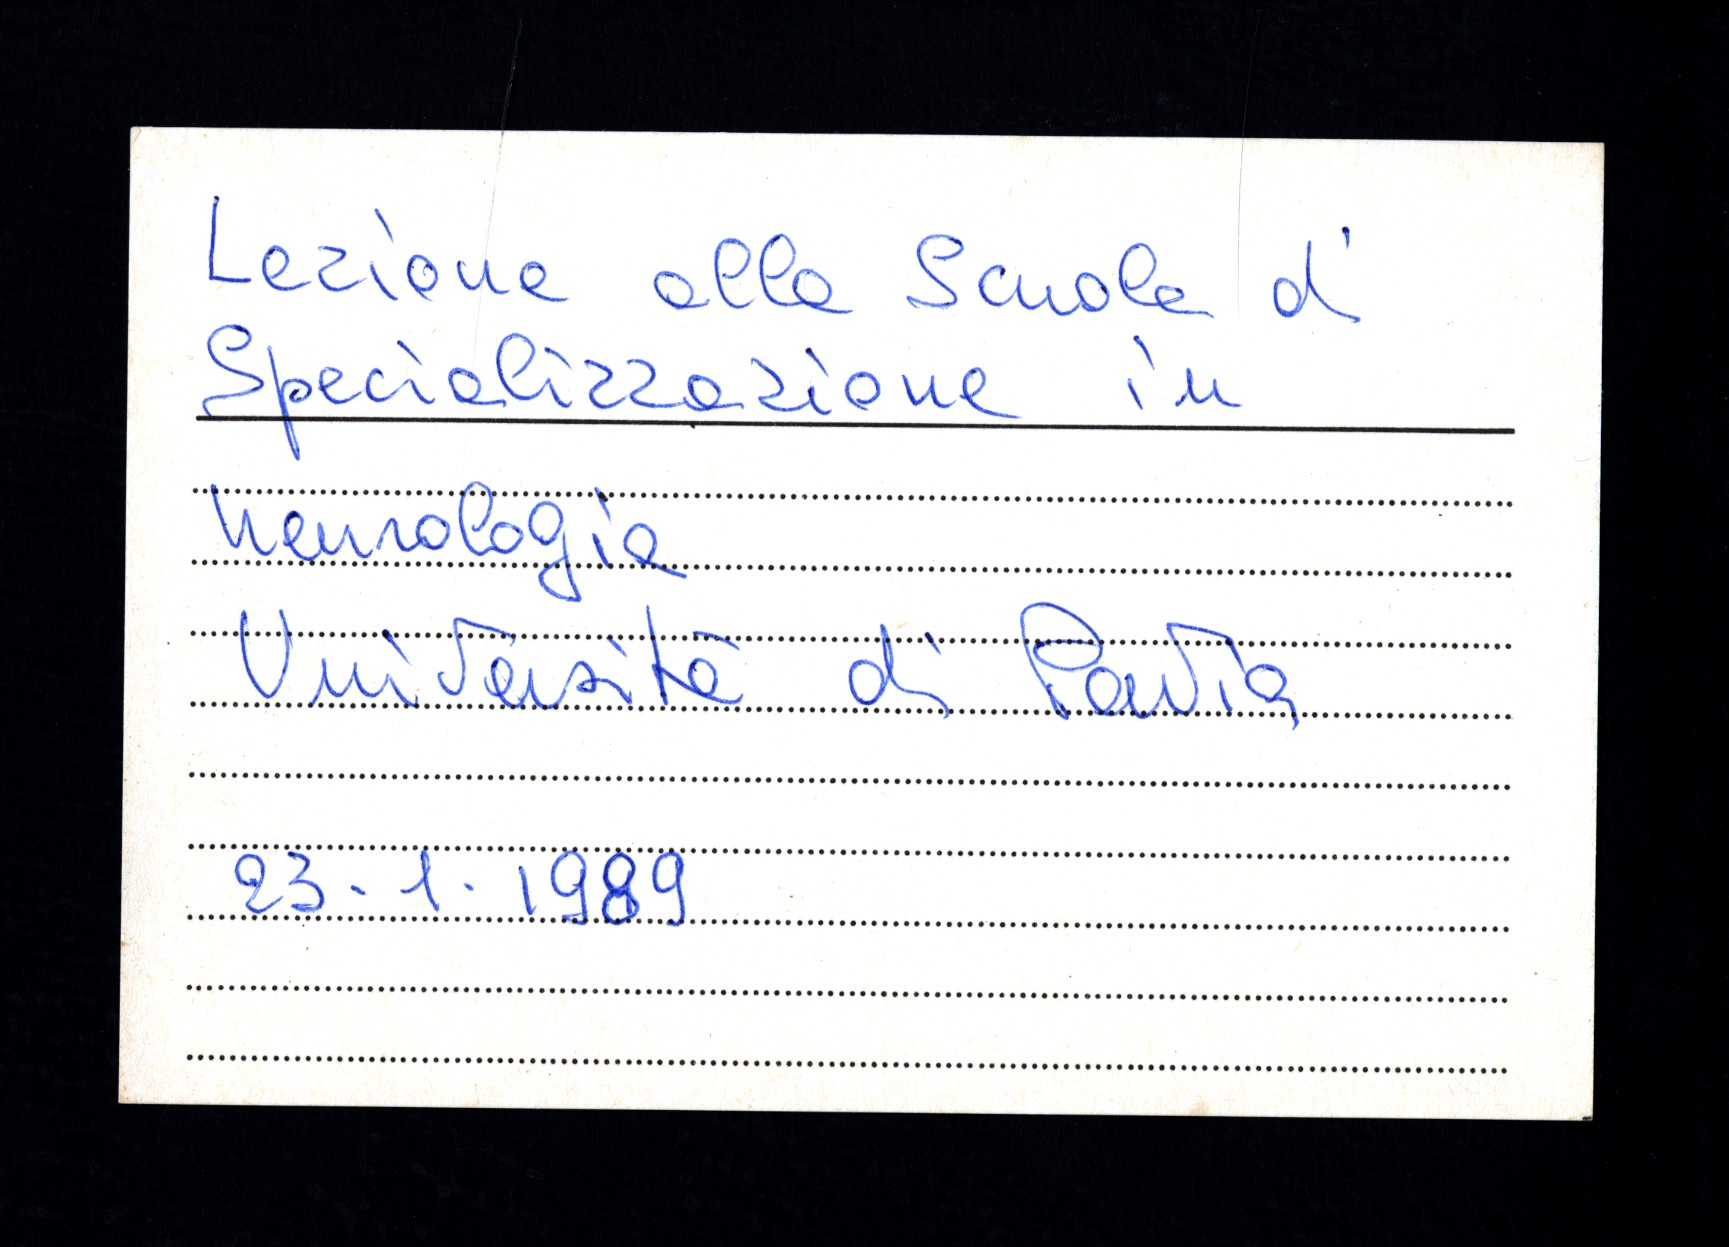 Lezione alla Scuola di
Specializzazione in
neurologia
Università di Pavia
23.1.1989